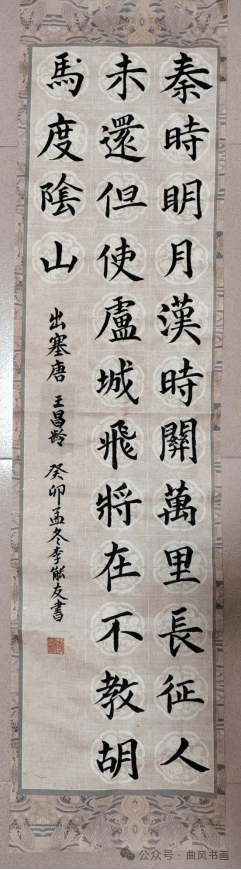 秦時明月漢時關萬里長征人
未還但使盧城飛將在不教胡
馬度陰山
出塞唐 王昌齡 癸卯孟冬李能友書
公众号 · 曲风书画